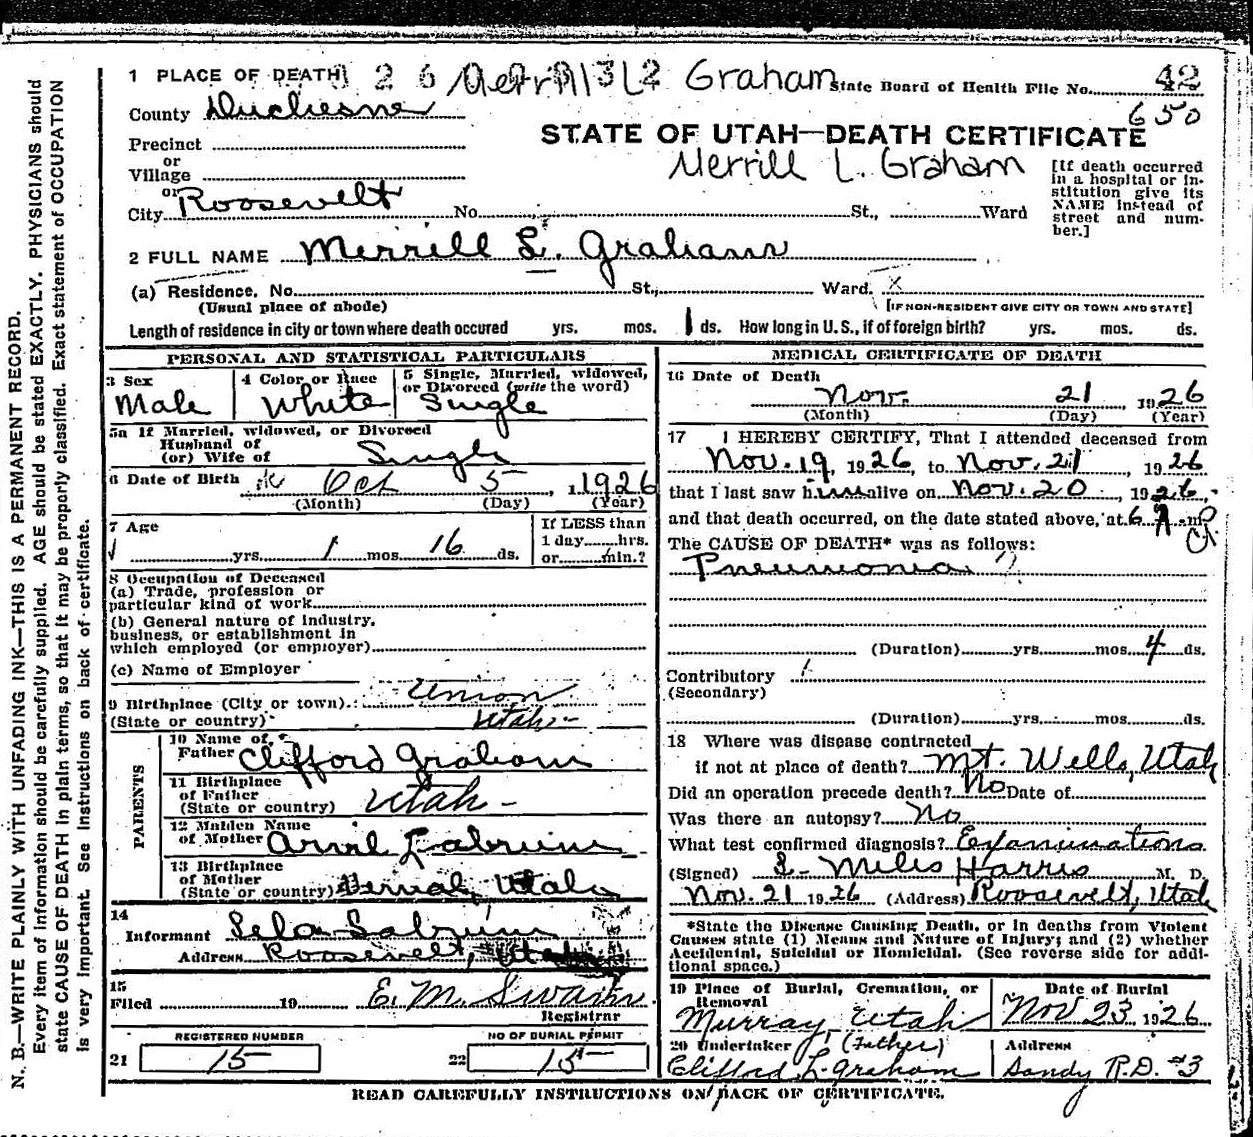 1 PLACE OF DEATH Graham State Board of Health File No. 42
650
County Duchesne
STATE OF UTAH—DEATH CERTIFICATE
Precinct
or
Village
Merrill L. Graham
[If death occurred in a hospital or in-
stitution give its
NAME instead of
street and num-
ber.]
or
City Roosevelt No. St., Ward
2 FULL NAME Merrill L. Graham
(a) Residence, No. St., Ward. X
(Usual place of abode) [IF NON-RESIDENT GIVE CITY OR TOWN AND STATE]
Length of residence in city or town where death occured yrs. mos. 1 ds. How long in U. S., if of foreign birth? yrs. mos. ds.
PERSONAL AND STATISTICAL PARTICULARS
3 Sex
Male
4 Color or Race
White
5 Single, Married, widowed,
or Divorced (write the word)
Single
5a If Married, widowed, or Divorced
Husband of
(or) Wife of Single
6 Date of Birth Oct 5, 1926
(Month) (Day) (Year)
7 Age
yrs. 1 mos. 16 ds.
If LESS than
1 day hrs.
or min.?
8 Occupation of Deceased
(a) Trade, profession or
particular kind of work
(b) General nature of Industry,
business, or establishment in
which employed (or employer)
(c) Name of Employer
9 Birthplace (City or town) Union
(State or country) Utah-
PARENTS
10 Name of
Father Clifford Graham
11 Birthplace
of Father
(State or country) Utah-
12 Maiden Name
of Mother Labrum
13 Birthplace
of Mother
(State or country) Vernal, Utah
14
Informant Labrum
Address Roosevelt, Utah
15
Filed 19 E. M. Swann
Registrar
REGISTERED NUMBER
21 15
NO OF BURIAL PERMIT
22 15
MEDICAL CERTIFICATE OF DEATH
16 Date of Death
Nov. 21, 1926
(Month) (Day) (Year)
17 I HEREBY CERTIFY, That I attended deceased from
Nov. 19, 1926, to Nov. 21, 1926
that I last saw him alive on Nov. 20, 1926,
and that death occurred, on the date stated above, at 6 A. m
The CAUSE OF DEATH* was as follows:
Pneumonia
(Duration) yrs. mos. 4 ds.
Contributory
(Secondary)
(Duration) yrs. mos. ds.
18 Where was disease contracted
if not at place of death? Mt. Wells, Utah
Did an operation precede death? No Date of
Was there an autopsy? No
What test confirmed diagnosis? Examinations
(Signed) L. Miles Harris M. D.
Nov. 21 1926 (Address) Roosevelt, Utah
*State the Disease Causing Death, or in deaths from Violent
Causes state (1) Means and Nature of Injury; and (2) whether
Accidental, Suicidal or Homicidal. (See reverse side for addi-
tional space.)
19 Place of Burial, Cremation, or
Removal
Murray, Utah
Date of Burial
Nov 23, 1926
20 Undertaker (Father)
Clifford L. Graham
Address
Sandy R.D. #3
READ CAREFULLY INSTRUCTIONS ON BACK OF CERTIFICATE.
N. B.—WRITE PLAINLY WITH UNFADING INK—THIS IS A PERMANENT RECORD.
Every item of information should be carefully supplied. AGE should be stated EXACTLY. PHYSICIANS should
state CAUSE OF DEATH in plain terms, so that it may be properly classified. Exact statement of OCCUPATION
is very important. See Instructions on back of certificate.